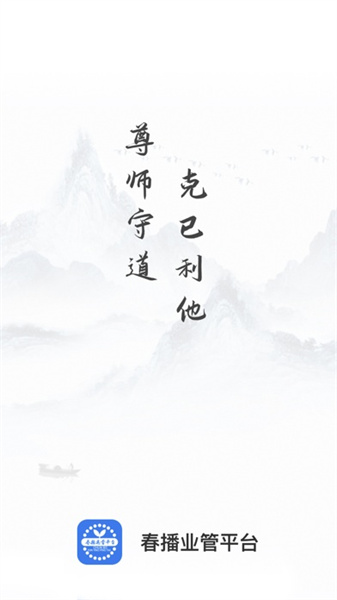 尊师守道
克已利他
春播业管平台